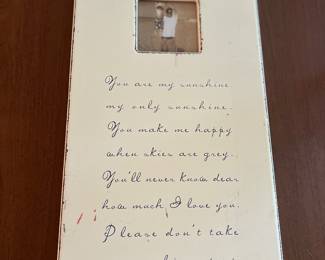 You are my sunshine
my only sunshine.
You make me happy
when skies are grey.
You'll never know dear
how much I love you.
Please don't take